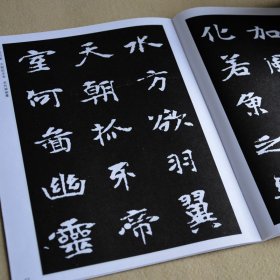 加
化若魚之
水方欲羽翼
天朝抓牙帝
室何啚幽靈